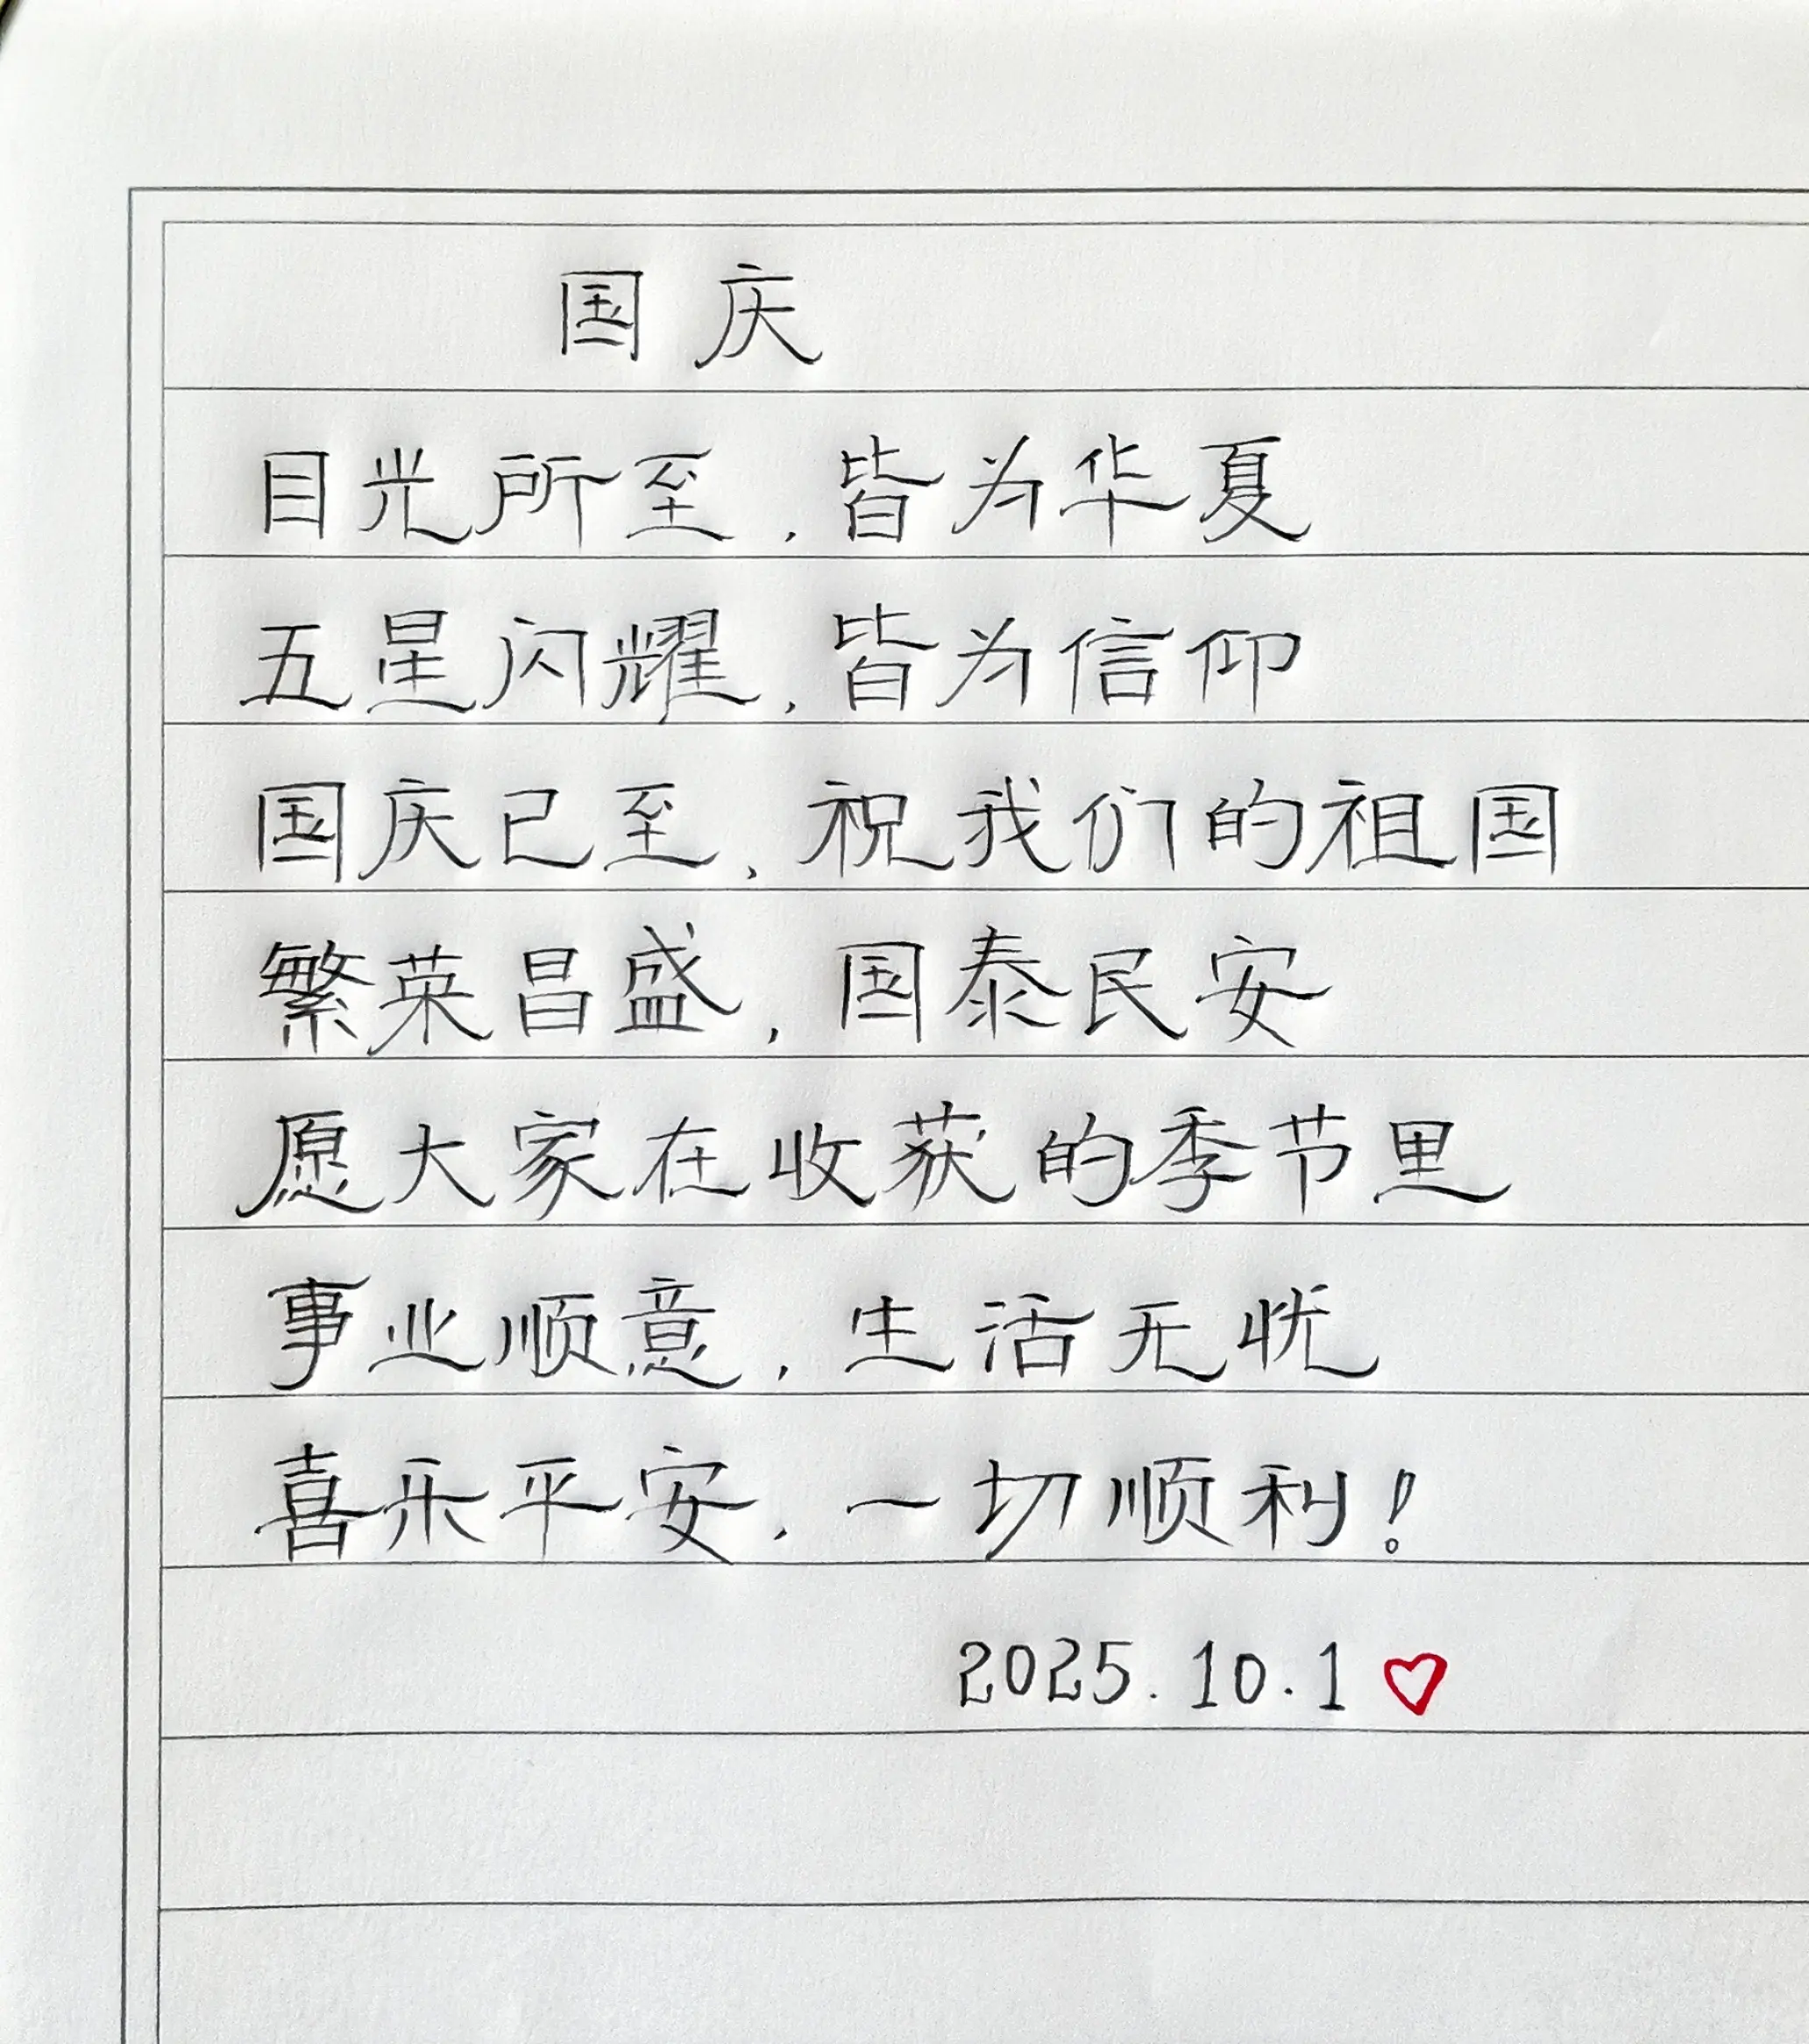 国庆
目光所至，皆为华夏
五星闪耀，皆为信仰
国庆已至，祝我们的祖国
繁荣昌盛，国泰民安
愿大家在收获的季节里
事业顺意，生活无忧
喜乐平安，一切顺利！
2025.10.1♡